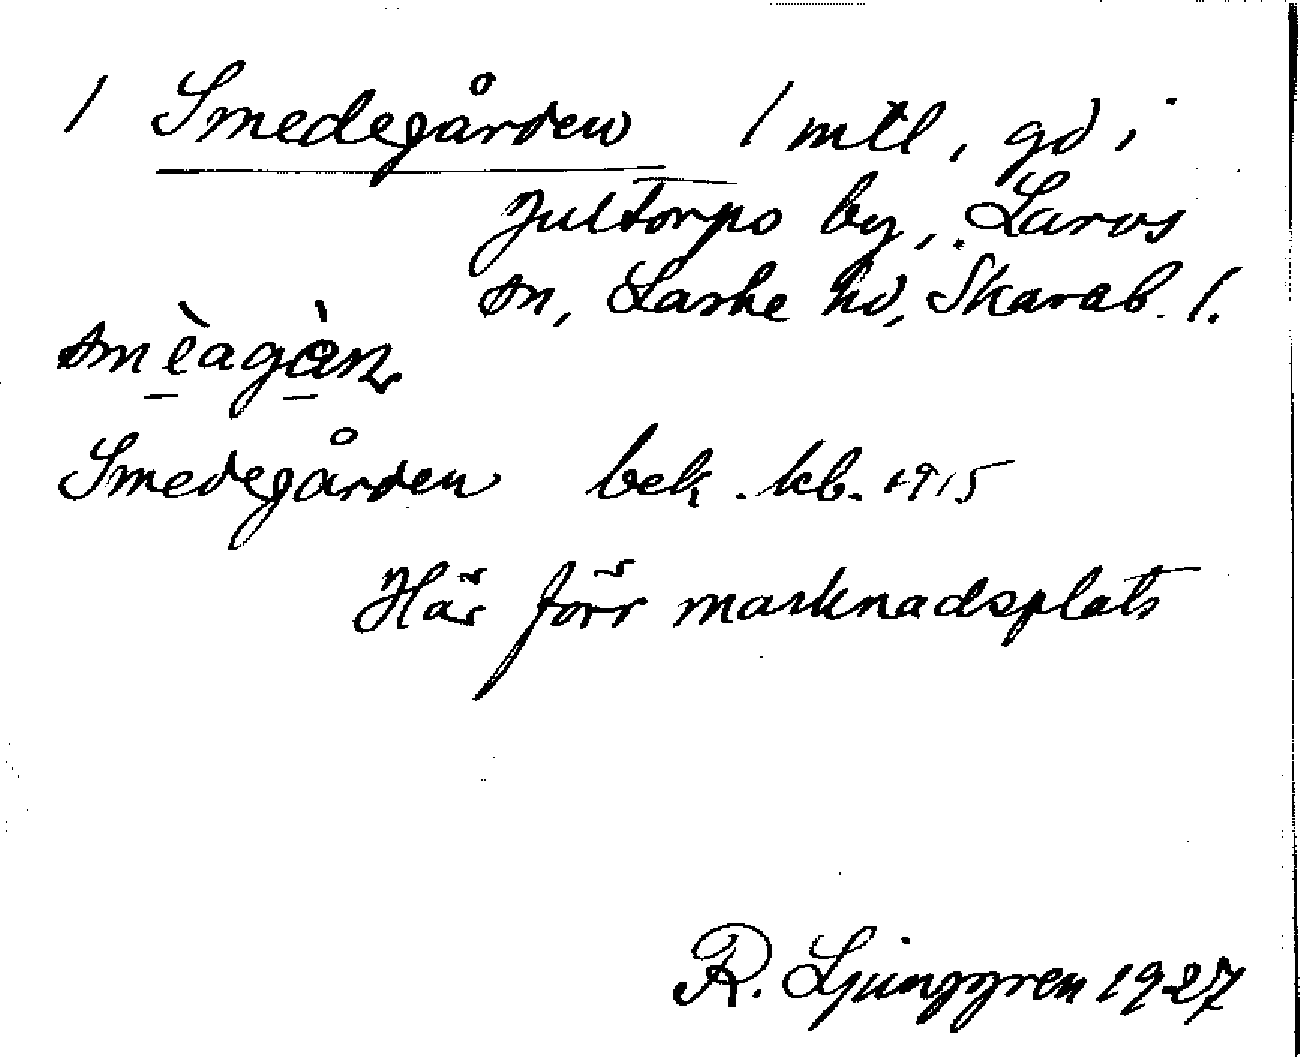 1 Smedegården 1 mtl, gd i
Jultorps by, Larvs
sn, Laske hd, Skarab. l.
Smedegården bek. kb. 1915
Här förr marknadsplats
R. Ljunggren 1927